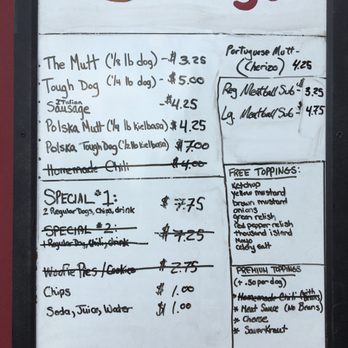 The Mutt (1/8 lb dog) - $3.25
Tough Dog (1/4 lb dog) - $5.00
Italian
Sausage - $4.25
Polska Mutt (1/4 lb Kielbasa) $4.25
Polska Tough Dog (1/2 lb Kielbasa) $7.00
Homemade Chili $4.00
Special #1: $7.75
2 Regular Dogs, Chips, drink
Special #2: $7.25
1 Regular Dog, Chili, drink
Woofie Pies / Cookies $2.75
Chips $1.00
Soda, Juice, Water $1.00
Portuguese Mutt -
(Cherizo) 4.25
Reg Meatball Sub - $3.25
Lg. Meatball Sub - $4.75
Free Toppings:
Ketchup
yellow mustard
brown mustard
onions
green relish
red pepper relish
thousand island
Mayo
celery salt
Premium Toppings
(+ .50 per dog)
* Homemade Chili (with Beans)
* Meat Sauce (No Beans)
* Cheese
* Sauerkraut